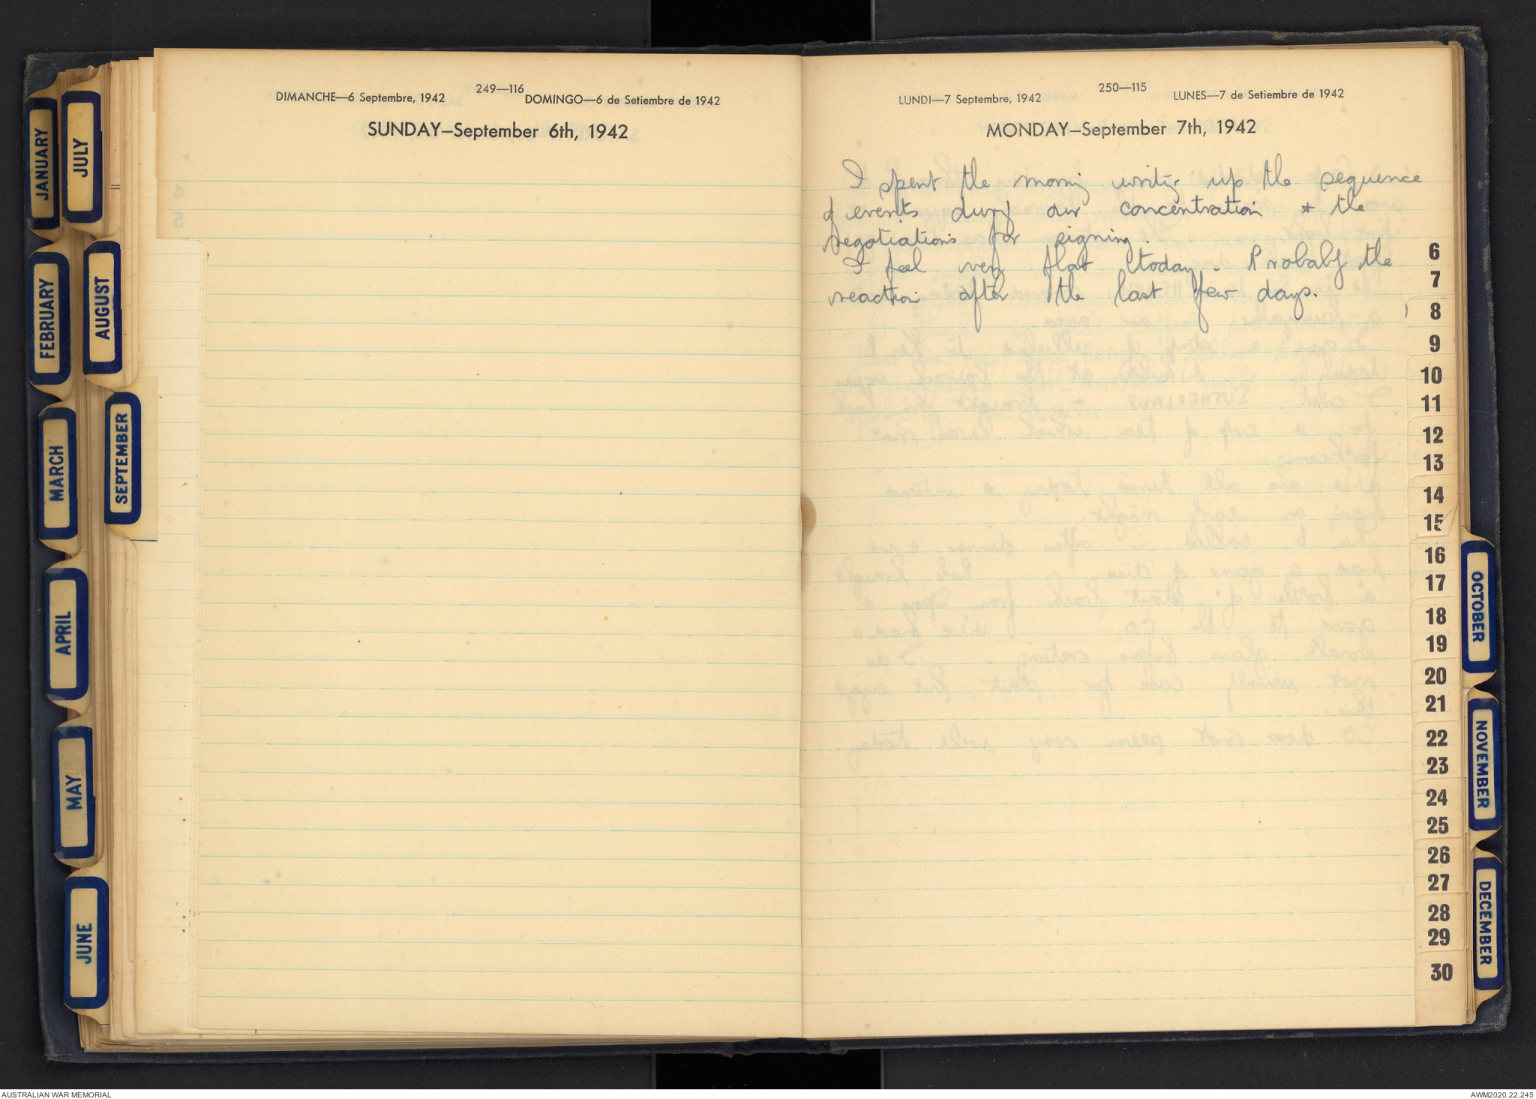 JANUARY
FEBRUARY
MARCH
APRIL
MAY
JUNE
JULY
AUGUST
SEPTEMBER
249—116
DIMANCHE—6 Septembre, 1942 DOMINGO—6 de Setiembre de 1942
SUNDAY—September 6th, 1942
250—115
LUNDI—7 Septembre, 1942 LUNES—7 de Setiembre de 1942
MONDAY—September 7th, 1942
I spent the morning writing up the sequence
of events during our concentration & the
negotiations for signing.
I feel very flat today. Probably the
reaction after the last few days.
6
7
8
9
10
11
12
13
14
15
16
17
18
19
20
21
22
23
24
25
26
27
28
29
30
OCTOBER
NOVEMBER
DECEMBER
AUSTRALIAN WAR MEMORIAL
AWM2020.22.245